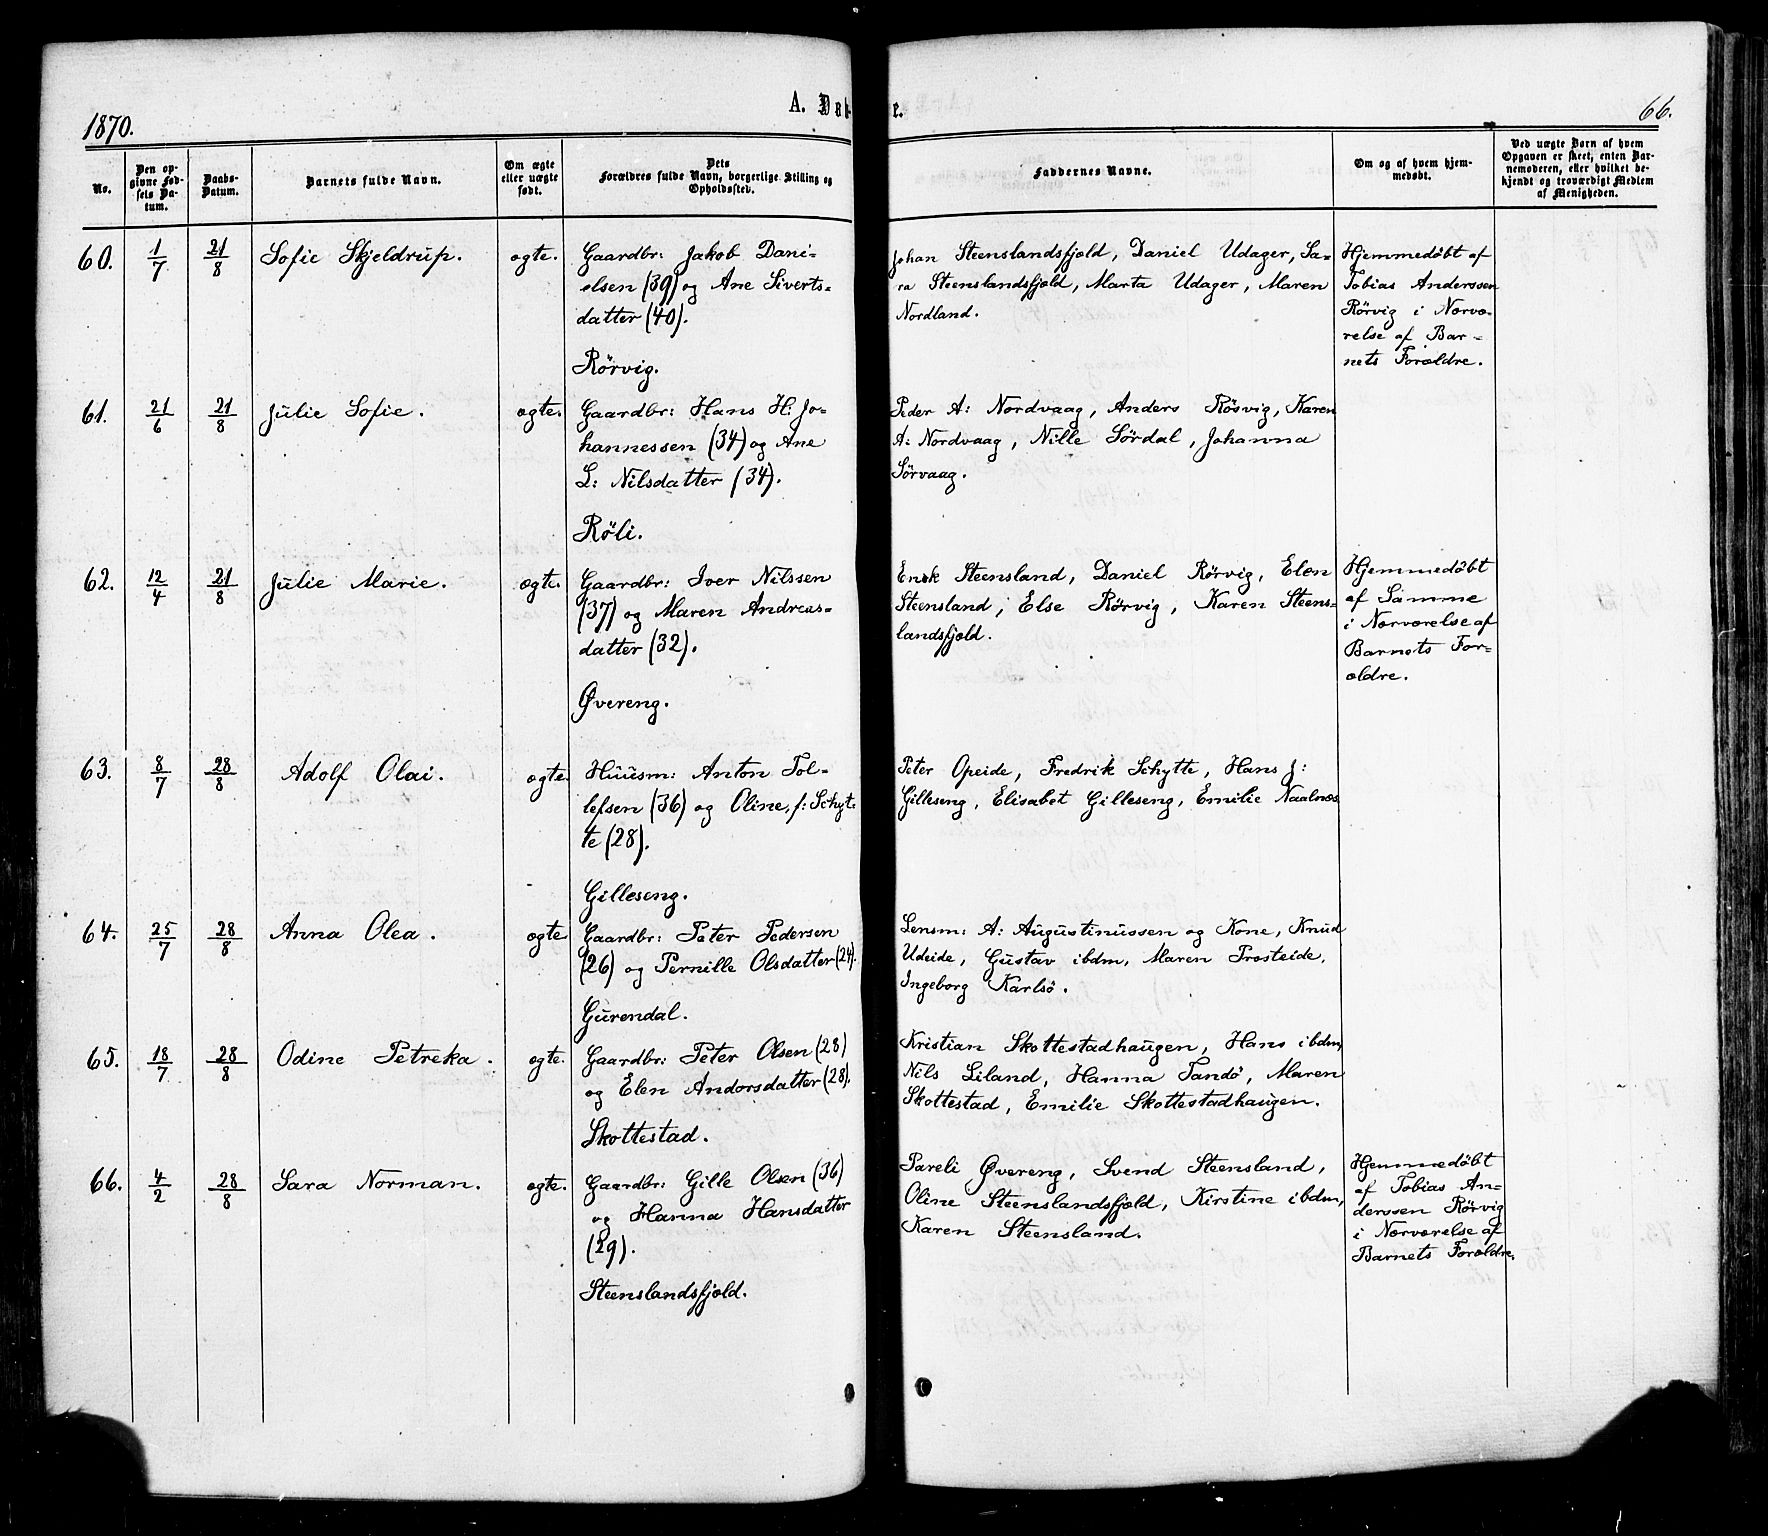 1870.
A. Døb-
e.
66.
No.
Den op-
givne Fød-
sels Da-
tum.
Daabs-
Datum.
Barnets fulde Navn.
Om ægte
eller uægte
født.
Dets
Forældres fulde Navn, borgerlige Stilling og
Opholdssted.
Faddernes Navne.
Om og af hvem hjem-
medøbt.
Ved uægte Børn af hvem
Opgaven er skeet, enten Bar-
nemoderen, eller hvilket be-
kjendt og troværdigt Medlem
af Menigheden.
60. 1/7 21/8 Sofie Skjeldrup. ægte.
Gaardbr: Jakob Dani-
elsen (39) og Ane Siverts-
datter (40).
Rörvig.
Johan Steenslandsfjæld, Daniel Udager, Sa-
ra Steenslandsfjæld, Marta Udager, Maren
Nordland.
Hjemmedöbt af
Tobias Anderssen
Rörvig i Nærvæ-
relse af Bar-
nets Forældre.
61. 21/6 21/8 Julie Sofie. ægte.
Gaardbr: Hans H: Jo-
hannessen (34) og Ane
L: Nilsdatter (34).
Röli.
Peder A: Nordvaag, Anders Rösvig, Karen
A: Nordvaag, Nille Sördal, Johanna
Sörvaag.
62. 12/4 21/8 Julie Marie. ægte.
Gaardbr: Iver Nilssen
(37) og Maren Andreas-
datter (32).
Øvereng.
Steensland, Daniel Rörvig, Elen
Steensland, Else Rörvig, Karen Steens-
landsfjæld.
Hjemmedöbt
af Samme
i Nærværelse af
Barnets For-
ældre.
63. 8/7 28/8 Adolf Olai. ægte.
Huusm: Anton Tol-
lefsen (36) og Oline, f: Schyt-
te (28).
Gilleseng.
Peter Opeide, Fredrik Schytte, Hans J:
Gilleseng, Elisabet Gilleseng, Emilie Naalnæs.
64. 25/7 28/8 Anna Olea. ægte
Gaardbr: Peter Pedersen
(26) og Pernille Olsdatter (24).
Gurendal.
Lensm: A: Augustinussen og Kone, Knud
Udeide, Gustav ibdm, Maren Prosteide,
Ingeborg Karlsö.
65. 18/7 28/8 Odine Petreka. ægte.
Gaardbr: Peter Olsen (28)
og Elen Andorsdatter (28).
Skottestad.
Kristian Skottestadhaugen, Hans ibdm,
Nils Liland, Hanna Tandö, Maren
Skottestad, Emilie Skottestadhaugen.
66. 4/2 28/8 Sara Norman. ægte.
Gaardbr: Gille Olsen (36)
og Hanna Hansdatter
(29).
Steenslandsfjæld.
Pareli Øvereng, Svend Steensland,
Oline Steenslandsfjæld, Kirstine ibdm,
Karen Steensland.
Hjemmedöbt
af Tobias An-
derssen Rörvig
i Nærværelse af
Barnets Forældre.